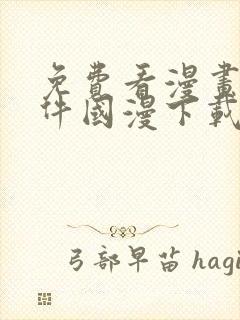 免費看漫畫
件國漫下載
弓部早苗 hagi